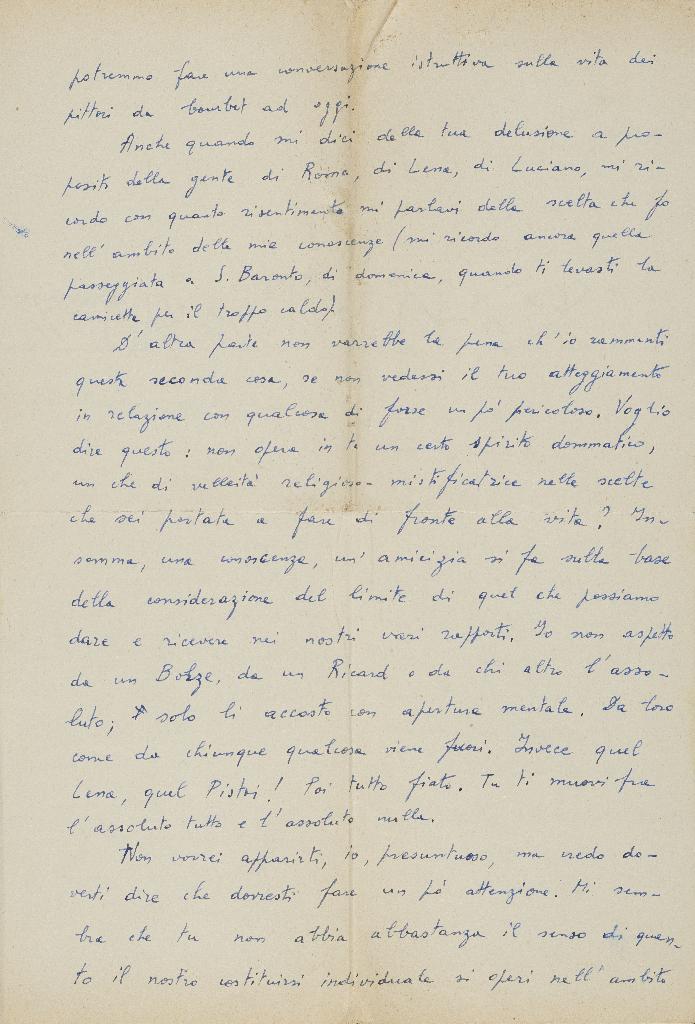 potremmo fare una conversazione istruttiva sulla vita dei
pittori da Courbet ad oggi.
Anche quando mi dici della tua delusione a pro-
posito della gente di Roma, di Lena, di Luciano, mi ri-
cordo con quanto risentimento mi parlavi della scelta che fo
nell'ambito delle mie conoscenze (mi ricordo ancora quella
passeggiata a S. Baronto, di domenica, quando ti levasti la
camicetta per il troppo caldo)!
D'altra parte non varrebbe la pena ch'io rammenti
questa seconda cosa, se non vedessi il tuo atteggiamento
in relazione con qualcosa di forse un pò pericoloso. Voglio
dire questo: non opera in te un certo spirito dommatico,
un che di velleità religioso-mistificatrice nelle scelte
che sei portata a fare di fronte alla vita? In-
somma, una conoscenza, un'amicizia si fa sulla base
della considerazione del limite di quel che possiamo
dare e ricevere nei nostri vari rapporti. Io non aspetto
da un Bolze, da un Ricard o da chi altro l'asso-
luto; solo li accosto con apertura mentale. Da loro
come da chiunque qualcosa viene fuori. Invece quel
Lena, quel Pistoi! Poi tutto fiato. Tu ti muovi fra
l'assoluto tutto e l'assoluto nulla.
Non vorrei apparirti, io, presuntuoso, ma credo do-
verti dire che dovresti fare un pò attenzione. Mi sem-
bra che tu non abbia abbastanza il senso di quan-
to il nostro costituirsi individuale si operi nell'ambito